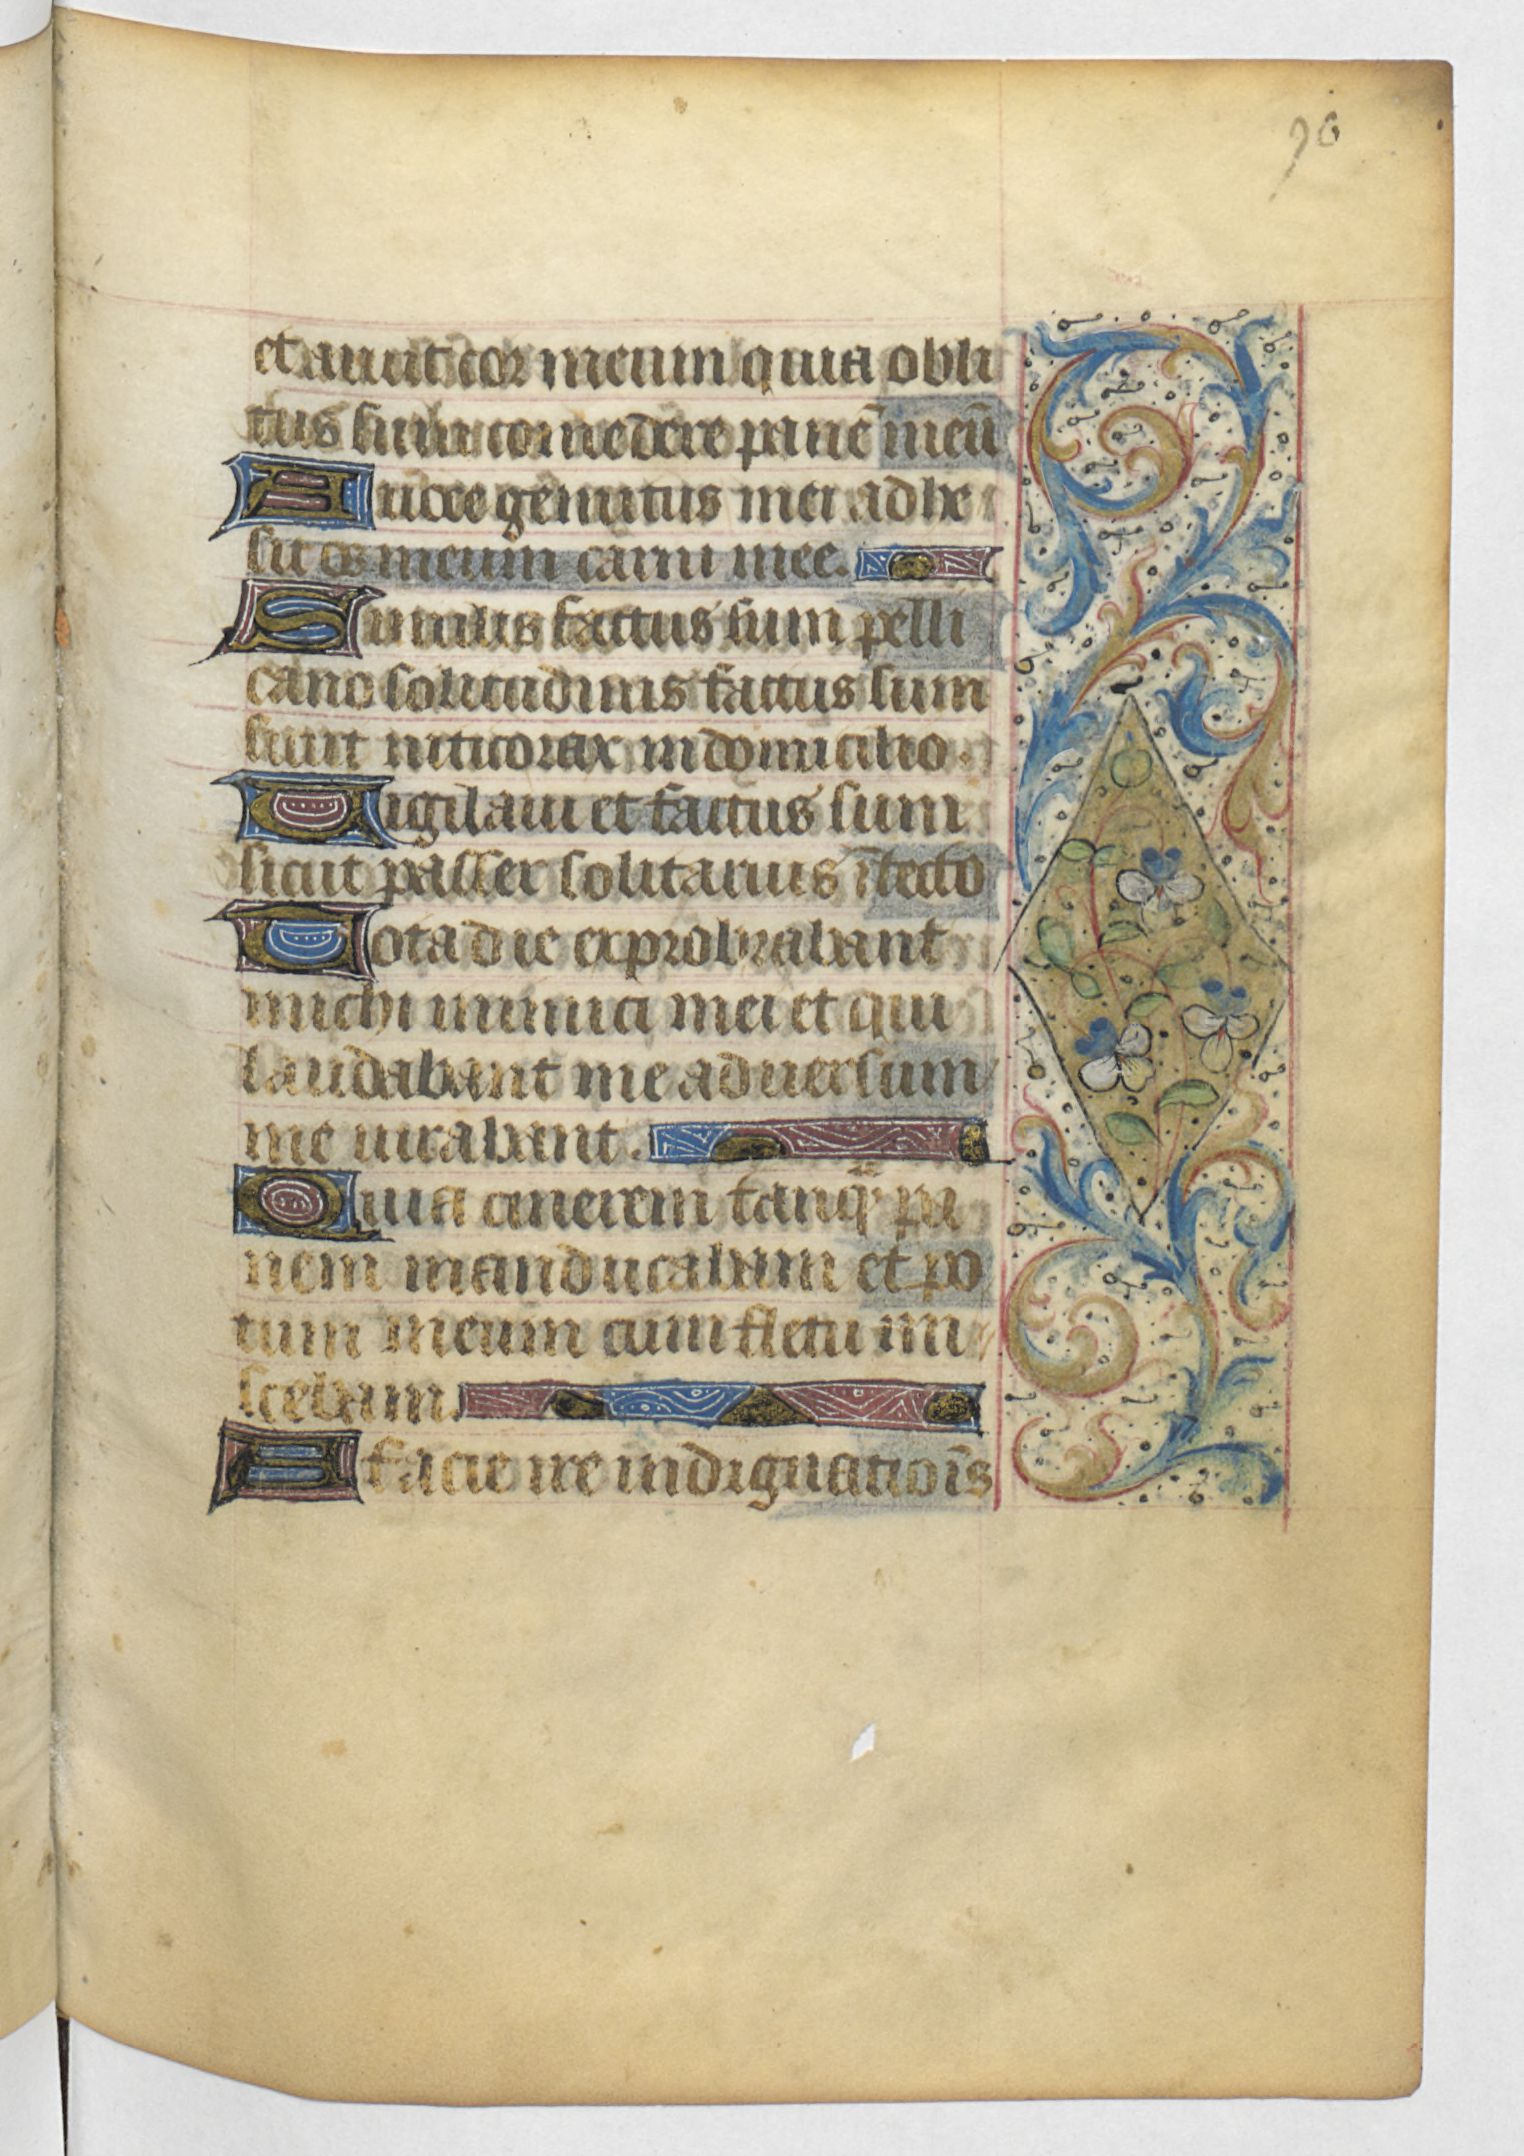 90
et aruit cor meum quia obli
tus sum comedere panē meū
A uoce gemitus mei adhe
sit os meum carni mee.
Similis factus sum pelli
cano solitudinis factus sum
sicut niticorax in domicilio.
Uigilaui et factus sum
sicut passer solitarius ī tecto
Tota die exprobrabant
michi inimici mei et qui
laudabant me aduersum
me iurabant.
Quia cinerem tanq̄ pa
nem manducabam et po
tum meum cum fletu mi
scebam.
A facie ire indignatiōis